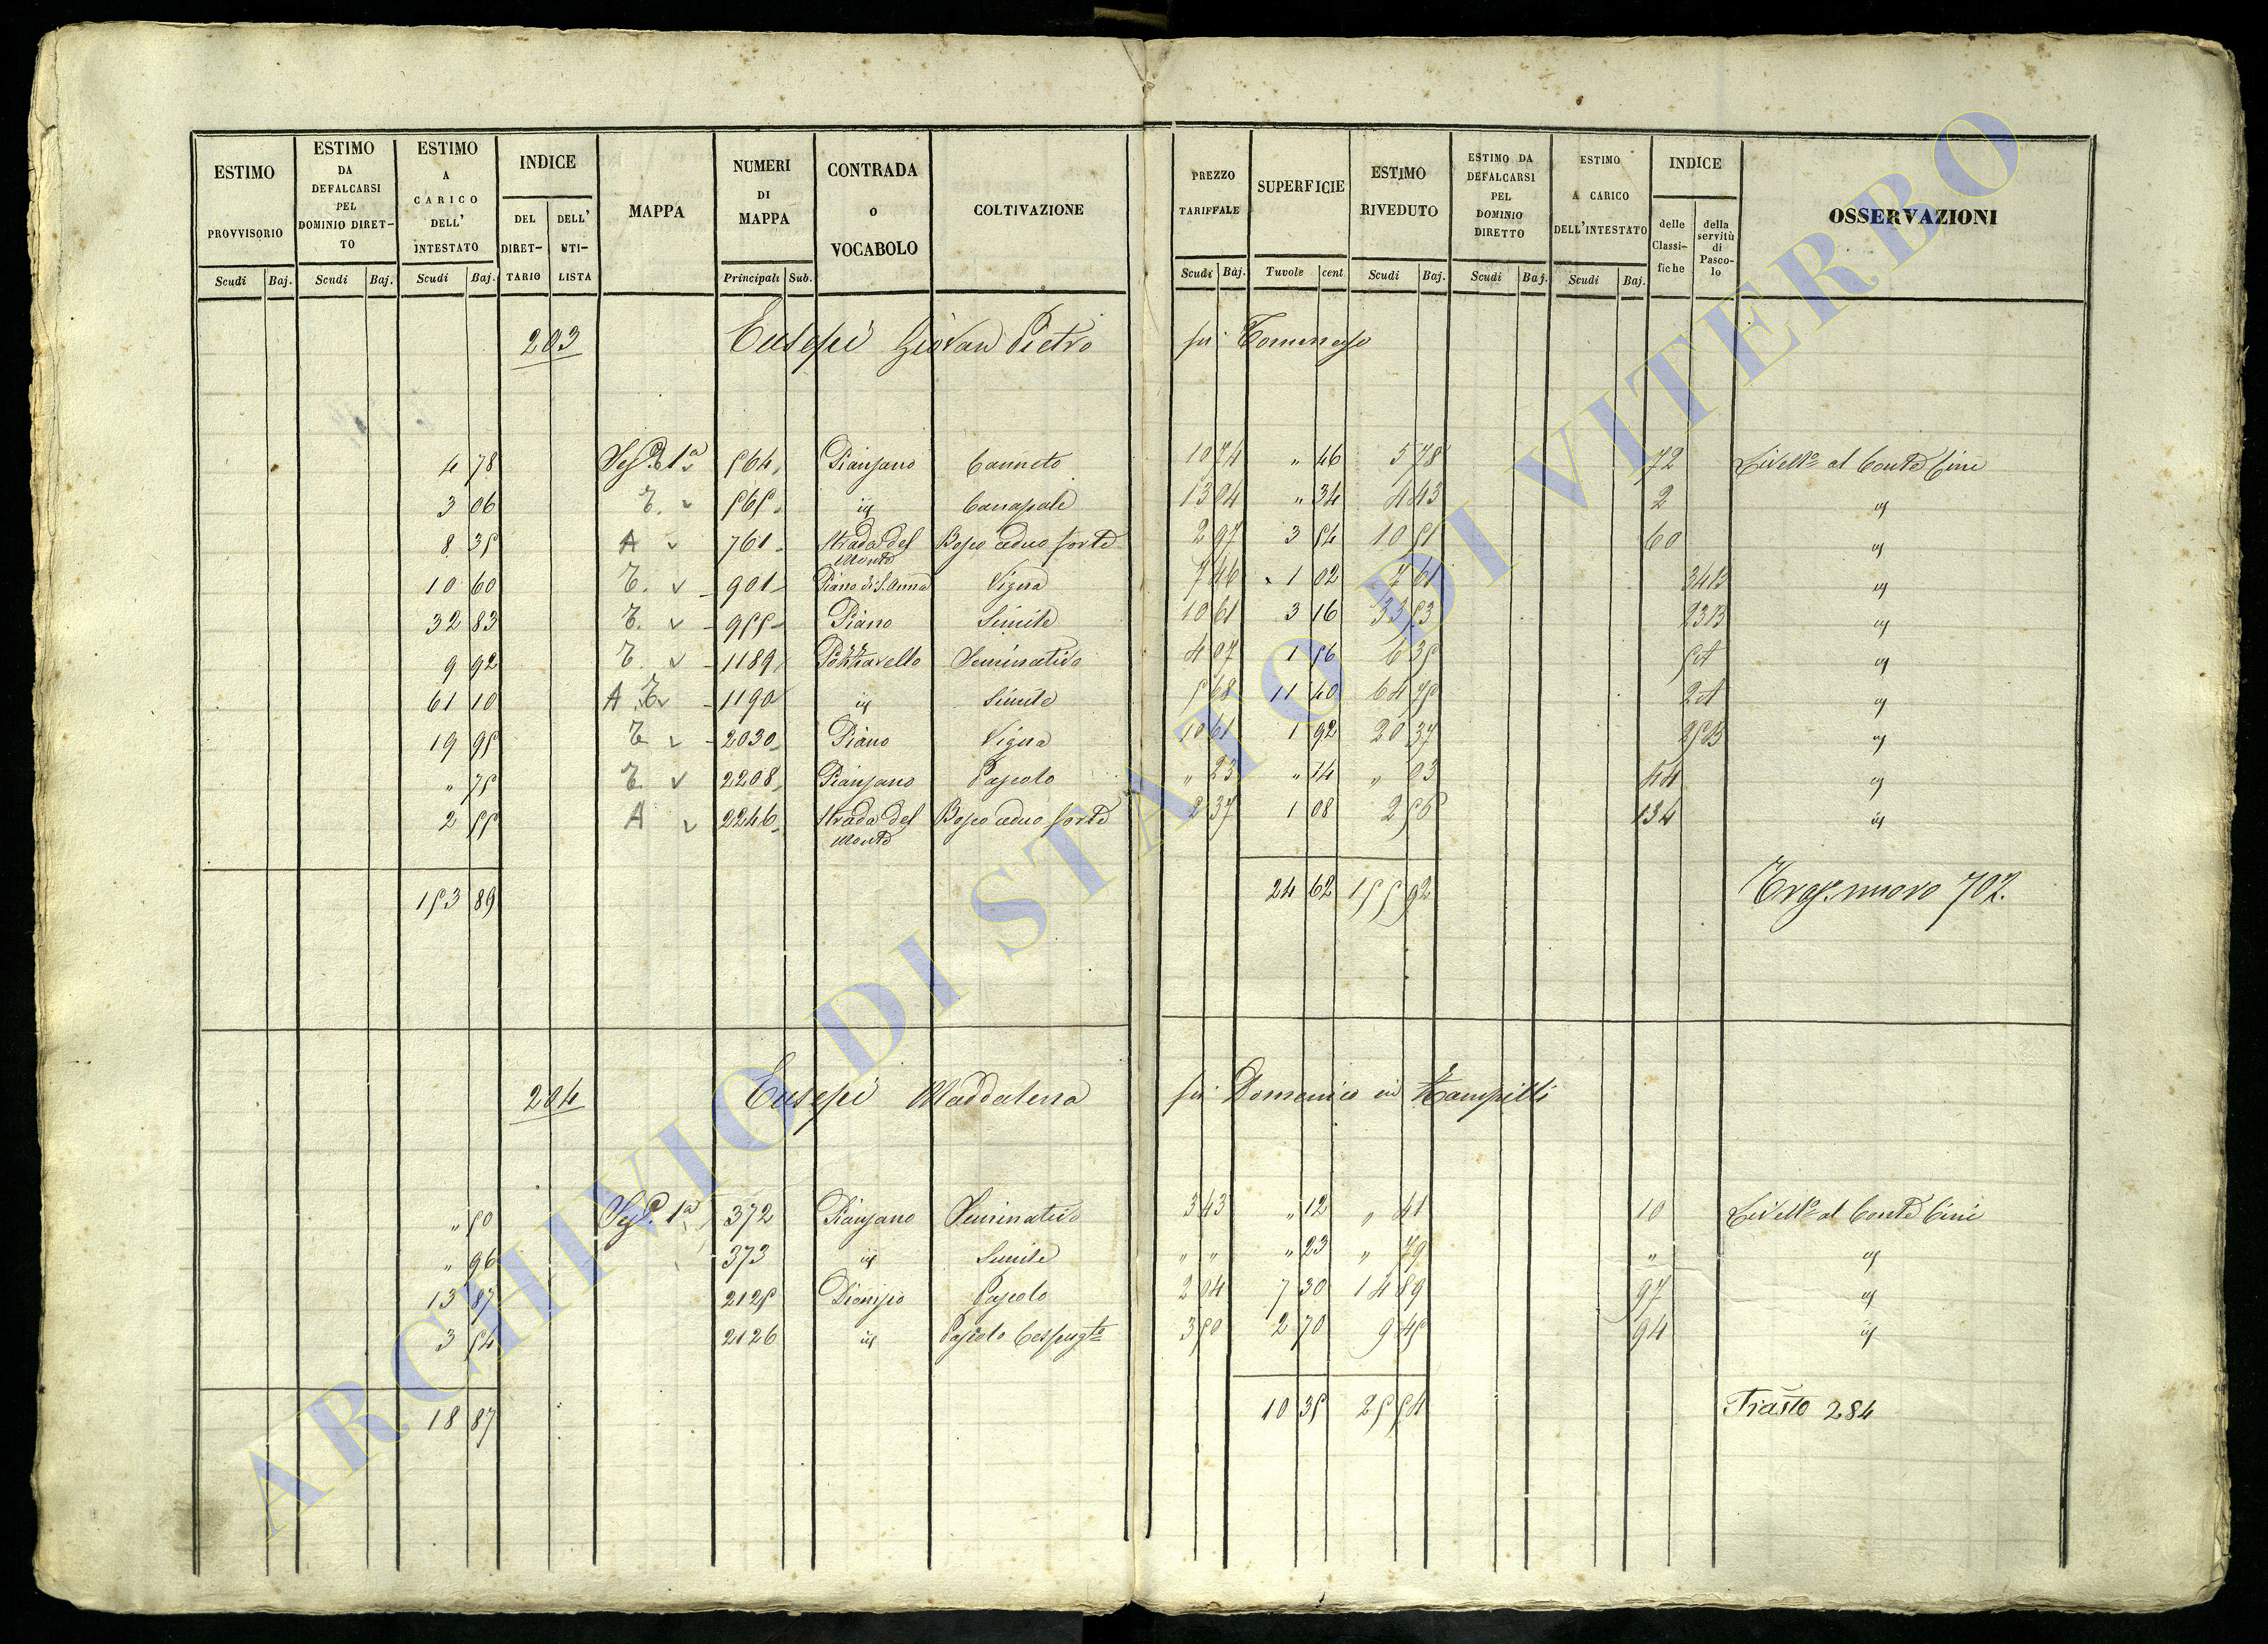 ESTIMO PROVVISORIO
ESTIMO DA DEFALCARSI PEL DOMINIO DIRET-TO
ESTIMO A CARICO DELL' INTESTATO
INDICE
DEL DIRET-TARIO
DELL' UTI-LISTA
MAPPA
NUMERI DI MAPPA
CONTRADA o VOCABOLO
COLTIVAZIONE
PREZZO TARIFFALE
SUPERFICIE
ESTIMO RIVEDUTO
ESTIMO DA DEFALCARSI PEL DOMINIO DIRETTO
ESTIMO A CARICO DELL'INTESTATO
INDICE
delle Classi-fiche
della servitù di Pasco-lo
OSSERVAZIONI
Scudi Baj. Scudi Baj. Scudi Baj. Principali Sub. Scudi Baj. Tavole cent Scudi Baj. Scudi Baj. Scudi Baj.
203 Eusepi Giovan Pietro fu Tommaso
4 78 Sez.e 1a 564 Pianzano Canneto 10 74 " 46 5 78 72 Livello al Conte Cini
3 06 T. 565 id Canapale 13 04 " 34 4 43 2 id
8 35 A 761 Strada del Monte Bosco ceduo forte 2 97 3 54 10 51 60 id
10 60 T. 901 Piano di S. Anna Vigna 7 46 1 02 7 61 34B id
32 83 T. 955 Piano Simile 10 61 3 16 33 53 23B id
9 92 T. 1189 Seminativo 4 07 1 56 6 35 5A id
61 10 A T. 1190 id Simile 5 68 11 40 64 75 2A id
19 95 T. 2030 Piano Vigna 10 61 1 92 20 37 25B id
" 75 T. 2208 Pianzano Pascolo " 23 " 14 " 03 44 id
2 55 A 2246 Strada del Monte Bosco ceduo forte 2 37 1 08 2 56 134 id
153 89 24 62 155 92 Tras. nuovo 702.
204 Eusepi Maddalena fu Domenico in
" 50 Sez.e 1a 372 Pianzano Seminativo 3 43 " 12 " 41 10 Livello al Conte Cini
" 96 373 id Simile " " " 23 " 79 " id
13 87 2125 Pascolo 2 04 7 30 14 89 97 id
3 54 2126 id Pascolo Cespugto 3 50 2 70 9 45 94 id
18 87 10 35 25 54 Trasto 284
ARCHIVIO DI STATO DI VITERBO